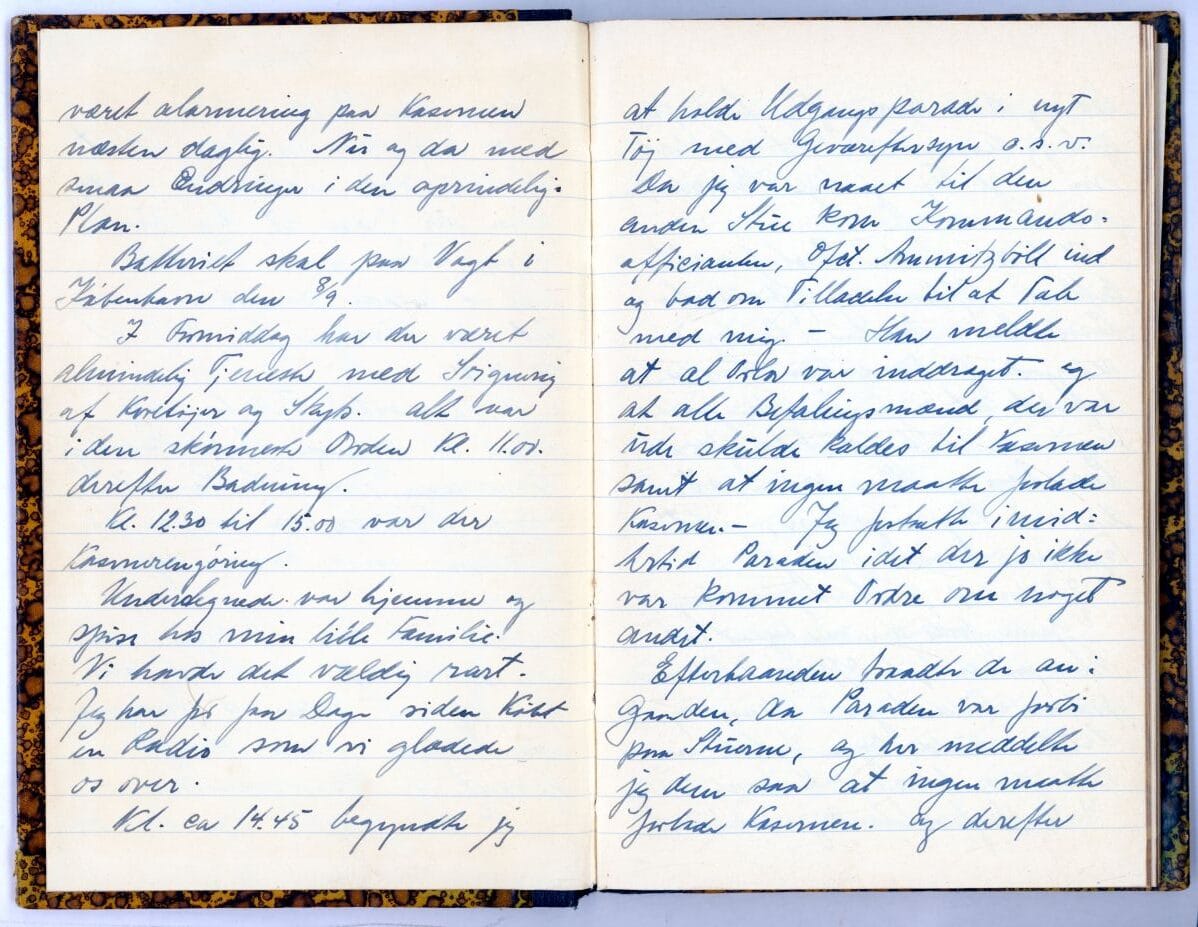 været alarmering paa Kasernen
næsten daglig. Nu og da med
smaa Ændringer i den oprindelig-
Plan.
Batteriet skal paa Vagt i
København den 8/9.
I Formiddag har der været
almindelig Tjeneste med Rigning
af Køretøjer og Skyts. alt var
i den skønneste Orden Kl. 11.00.
derefter Badning.
Kl. 12.30 til 15.00 var der
Kasernerengøring.
Undertegnede var hjemme og
spise hos min lille Familie.
Vi havde det vældig rart.
Jeg har for faa Dage siden Købt
en Radio som vi glædede
os over.
Kl. ca 14.45 begyndte jeg
at holde Udgangsparade i nyt
Tøj med Geværeftersyn o.s.v.
Da jeg var naaet til den
anden Stue kom Kommando-
officianten, Ofct. Ammitzbøll ind
og bad om Tilladelse til at Tale
med mig. – Han meldte
at al Orlov var inddraget. og
at alle Befalingsmænd, der var
ude skulde kaldes til Kasernen
samt at ingen maatte forlade
Kasernen. – Jeg fortsatte imid-
lertid Paraden idet der jo ikke
var kommet Ordre om noget
andet.
Efterhaanden traadte de an i
Gaarden, da Paraden var forbi
paa Stuerne, og her meddelte
jeg dem saa at ingen maatte
forlade Kasernen. og derefter